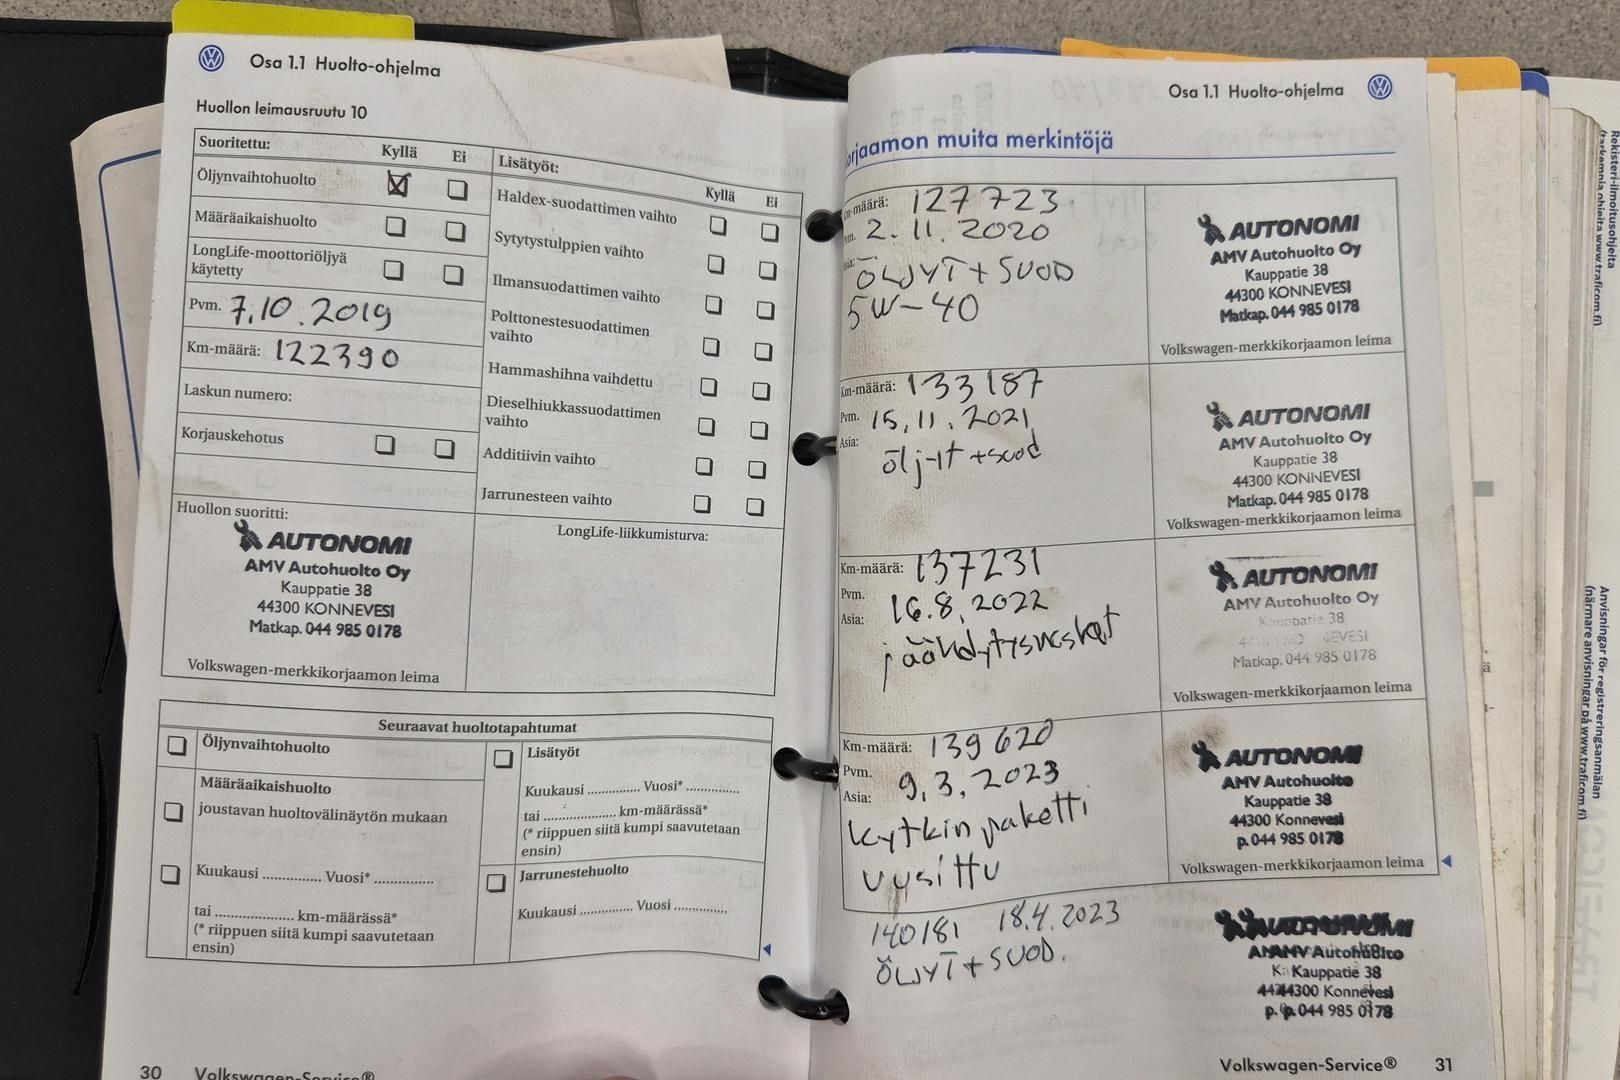 Osa 1.1 Huolto-ohjelma
Huollon leimausruutu 10
Suoritettu: Kyllä Ei
Öljynvaihtohuolto
Määräaikaishuolto
LongLife-moottoriöljyä
käytetty
Pvm. 7.10.2019
Km-määrä: 122390
Laskun numero:
Korjauskehotus
Huollon suoritti:
AUTONOMI
AMV Autohuolto Oy
Kauppatie 38
44300 KONNEVESI
Matkap. 044 985 0178
Volkswagen-merkkikorjaamon leima
Lisätyöt:
Kyllä Ei
Haldex-suodattimen vaihto
Sytytystulppien vaihto
Ilmansuodattimen vaihto
Polttonestesuodattimen
vaihto
Hammashihna vaihdettu
Dieselhiukkassuodattimen
vaihto
Additiivin vaihto
Jarrunesteen vaihto
LongLife-liikkumisturva:
Seuraavat huoltotapahtumat
Öljynvaihtohuolto
Määräaikaishuolto
joustavan huoltovälinäytön mukaan
Kuukausi .............. Vuosi* ..............
tai .................... km-määrässä*
(* riippuen siitä kumpi saavutetaan
ensin)
Lisätyöt
Kuukausi .............. Vuosi* ..............
tai .................... km-määrässä*
(* riippuen siitä kumpi saavutetaan
ensin)
Jarrunestehuolto
Kuukausi .............. Vuosi ..............
30 Volkswagen-Service®
Osa 1.1 Huolto-ohjelma
orjaamon muita merkintöjä
Km-määrä: 127 723
Pvm. 2.11.2020
Asia: ÖLJYT + SUOD
5W-40
AUTONOMI
AMV Autohuolto Oy
Kauppatie 38
44300 KONNEVESI
Matkap. 044 985 0178
Volkswagen-merkkikorjaamon leima
Km-määrä: 133187
Pvm. 15.11.2021
Asia: öljyt + suod
AUTONOMI
AMV Autohuolto Oy
Kauppatie 38
44300 KONNEVESI
Matkap. 044 985 0178
Volkswagen-merkkikorjaamon leima
Km-määrä: 137231
Pvm. 16.8.2022
Asia:
AUTONOMI
AMV Autohuolto Oy
Kauppatie 38
Matkap. 044 985 0178
Volkswagen-merkkikorjaamon leima
Km-määrä: 139 620
Pvm. 9.3.2023
Asia: kytkin paketti
uusittu
AUTONOMI
AMV Autohuolto
Kauppatie 38
44300 Konnevesi
p. 044 985 0178
Volkswagen-merkkikorjaamon leima
140181 18.4.2023
ÖLJYT + SUOD.
AUTONOMI
AMV Autohuolto
Kauppatie 38
44300 Konnevesi
p. 044 985 0178
Volkswagen-Service® 31
Rekisteri-ilmoitusohjeita
(tarkempia ohjeita www.traficom.fi)
Anvisningar för registreringsanmälan
(närmare anvisningar på www.traficom.fi)